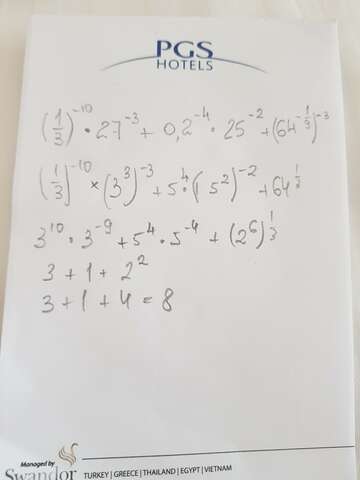 PGS
HOTELS
(1/3)^-10 · 27^-3 + 0,2^-4 · 25^-2 + (64^-1/3)^-3
(1/3)^-10 × (3^3)^-3 + 5^4 · (5^2)^-2 + 64^1/3
3^10 · 3^-9 + 5^4 · 5^-4 + (2^6)^1/3
3 + 1 + 2^2
3 + 1 + 4 = 8
Managed by
Swandor TURKEY | GREECE | THAILAND | EGYPT | VIETNAM